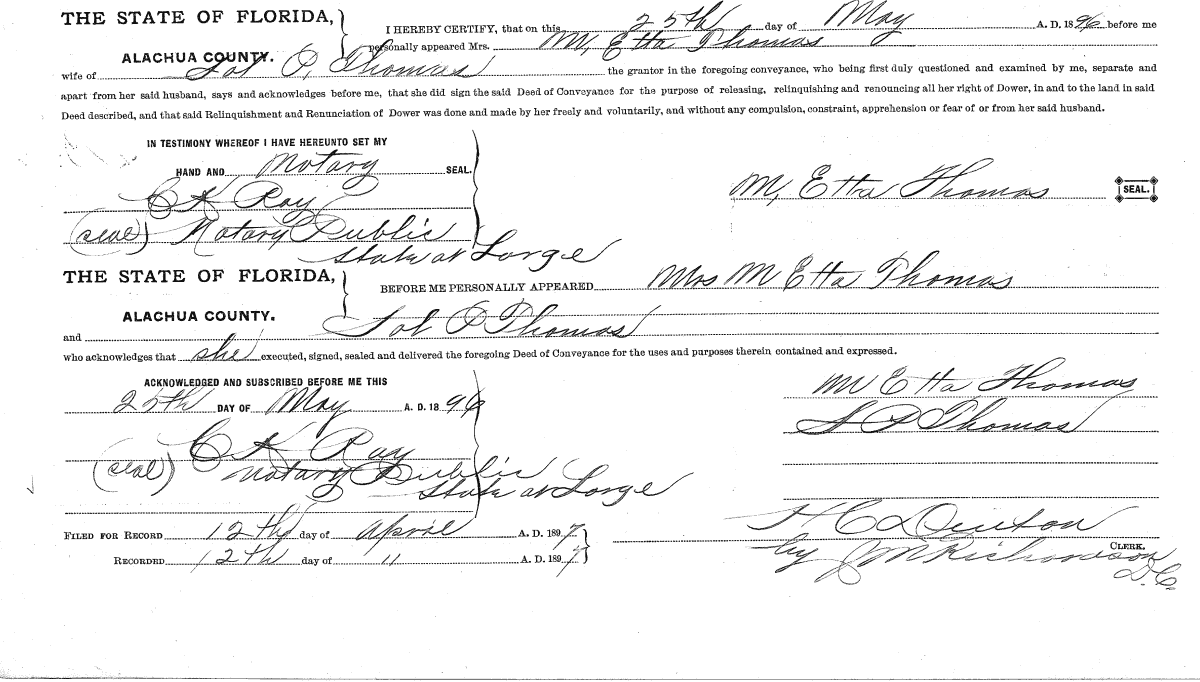 THE STATE OF FLORIDA,
I HEREBY CERTIFY, that on this 25th day of May A. D. 1896 before me
ALACHUA COUNTY.
personally appeared Mrs. M, Etta Thomas
wife of Sol P, Thomas the grantor in the foregoing conveyance, who being first duly questioned and examined by me, separate and
apart from her said husband, says and acknowledges before me, that she did sign the said Deed of Conveyance for the purpose of releasing, relinquishing and renouncing all her right of Dower, in and to the land in said
Deed described, and that said Relinquishment and Renunciation of Dower was done and made by her freely and voluntarily, and without any compulsion, constraint, apprehension or fear of or from her said husband.
IN TESTIMONY WHEREOF I HAVE HEREUNTO SET MY
HAND AND Notary SEAL.
C K Ray
M, Etta Thomas SEAL.
(seal) Notary Public
State at Large
THE STATE OF FLORIDA,
BEFORE ME PERSONALLY APPEARED Mrs M Etta Thomas
ALACHUA COUNTY.
and Sol P Thomas
who acknowledges that she executed, signed, sealed and delivered the foregoing Deed of Conveyance for the uses and purposes therein contained and expressed.
ACKNOWLEDGED AND SUBSCRIBED BEFORE ME THIS
25th DAY OF May A. D. 1896
M Etta Thomas
S P Thomas
C K Ray
(seal) Notary Public
State at Large
FILED FOR RECORD 12th day of April A. D. 1897
H C Denton
CLERK.
RECORDED 12th day of " A. D. 1897
by J M Richardson
D.C.